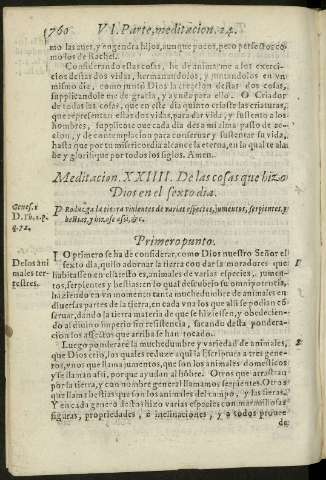 760 VI. Parte, meditacion. 24.
mo las aues, y engendra hijos, aunque pocos, pero perfectos co
mo los de Rachel.
Considerando estas cosas, he de animarme a los exerci-
cios destas dos vidas, hermanandolos, y juntandolos en vn
mismo dia, como juntò Dios la creacion destas dos cosas,
suplicandole me de gracia, y ayuda para ello. O Criador
de todas las cosas, que en este dia quinto criaste las criaturas,
que representan estas dos vidas, para dar vida, y sustento a los
hombres, suplicote que cada dia des a mi alma pasto de ac-
cion, y de contemplacion para conseruar y sustentar su vida,
hasta que por tu misericordia alcance la eterna, en la qual te ala
be y glorifique por todos los siglos. Amen.
Meditacion. XXIIII. De las cosas que hizo
Dios en el sexto dia.
Genes. 1
D. Th. 1. p.
q. 72.
PRoduzga la tierra viuientes de varias especies, jumentos, serpientes, y
bestias, y hizose assi, &c.
Primero punto.
De los ani
males ter-
restres.
LO primero se ha de considerar, como Dios nuestro Señor el
sexto dia, quiso adornar la tierra con dar la moradores que
habitassen en ella: esto es, animales de varias especies, jumen-
tos, serpientes y bestias: en lo qual descubrio su omnipotencia,
haziendo en vn momento tanta muchedumbre de animales en
diuersas partes de la tierra, en cada vna los que alli se podian co
seruar, dando la tierra materia de que se hiziessen, y obedecien-
do al diuino imperio sin resistencia, sacando desta pondera-
cion los affectos que arriba se han tocado.
1
Luego ponderarè la muchedumbre y variedad de animales,
que Dios crio, los quales reduze aqui la Escriptura a tres gene-
ros, vnos que llama jumentos, que son los animales domesticos
y se llaman assi, por que ayudan al hõbre. Otros que arrastrãn
por la tierra, y con nombre general llamamos serpientes. Otros
que llama bestias que son los animales del campo, y las fieras.
Y en cada genero destos hizo varias especies con marauillosas
figuras, propriedades, è inclinaciones, y a todos prouee
2
de